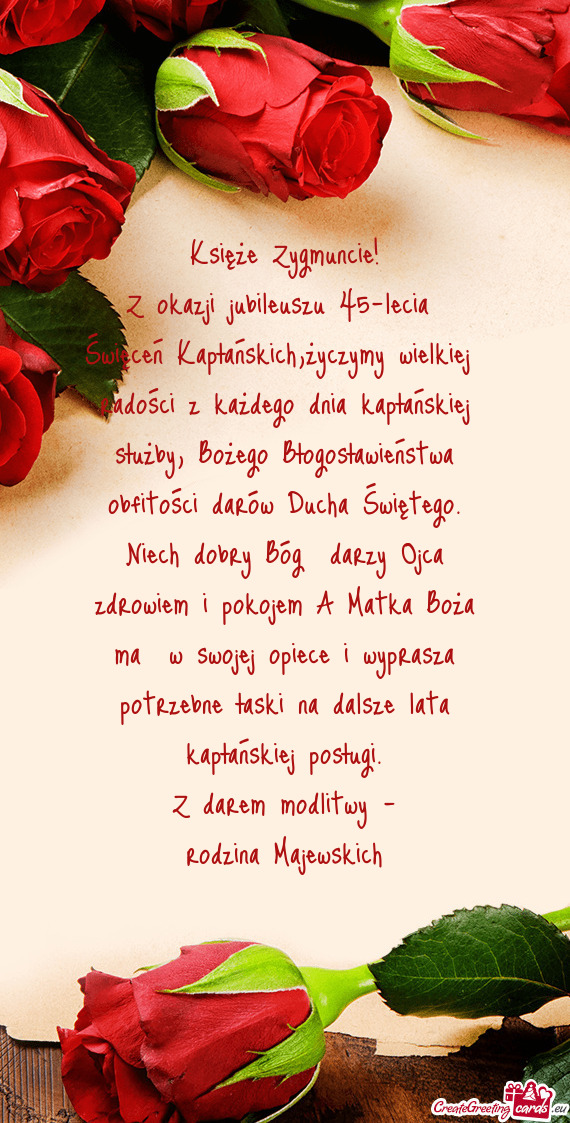 Księże Zygmuncie!
Z okazji jubileuszu 45-lecia
Święceń Kapłańskich,życzymy wielkiej
radości z każdego dnia kapłańskiej
służby, Bożego Błogosławieństwa
obfitości darów Ducha Świętego.
Niech dobry Bóg darzy Ojca
zdrowiem i pokojem A Matka Boża
ma w swojej opiece i wyprasza
potrzebne łaski na dalsze lata
kapłańskiej posługi.
Z darem modlitwy -
rodzina Majewskich
CreateGreeting cards .eu